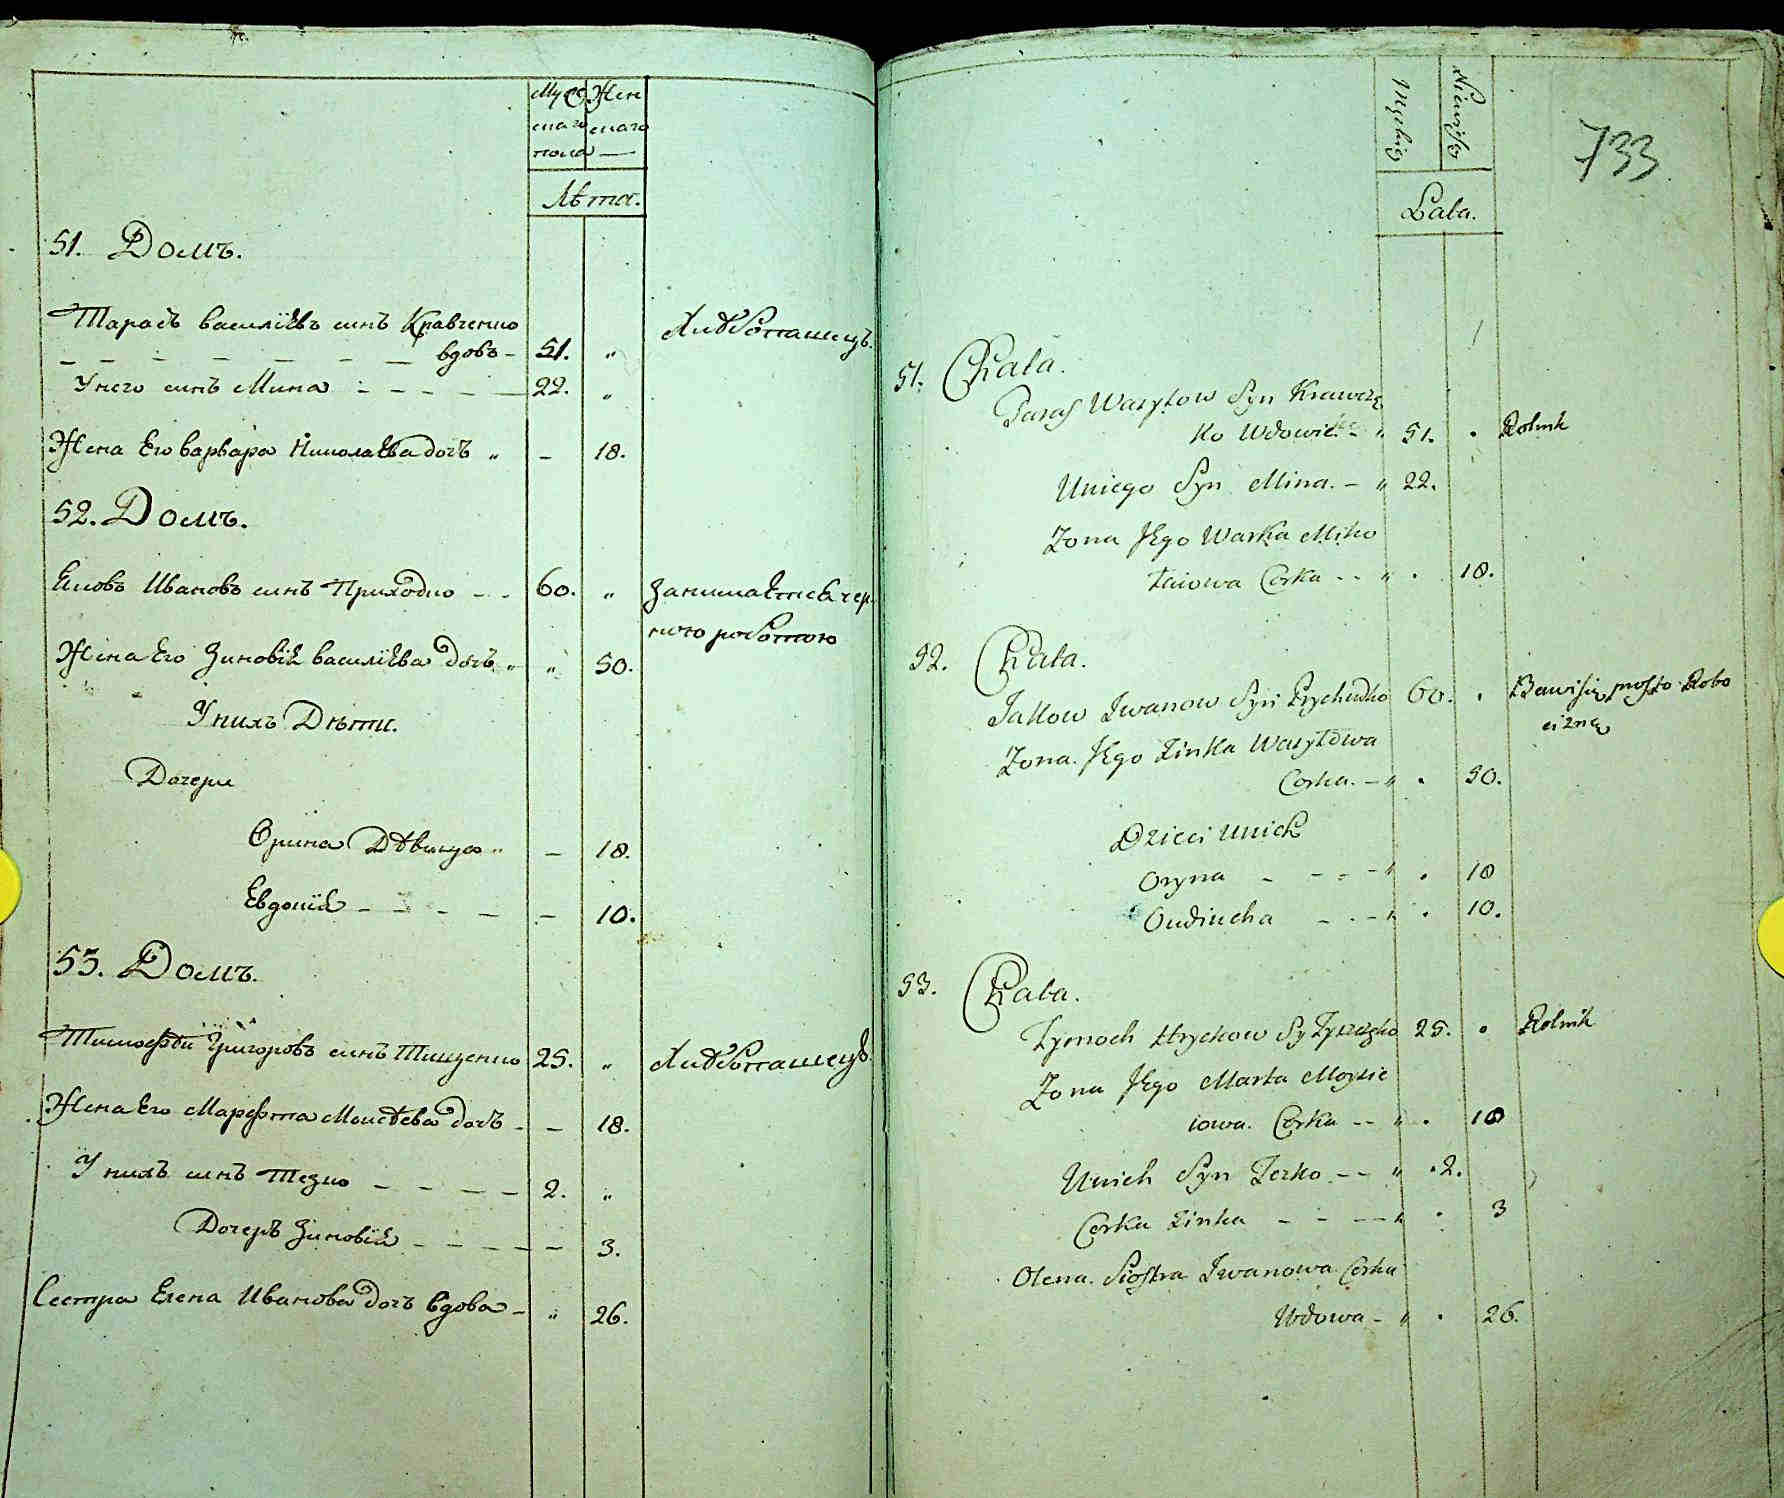 Муж Жен
скаго скаго
пола —
Лѣта.
51. Домъ.
Тарасъ василіевъ синъ Кравченко
вдовъ - 51. „
Унего синъ Мина - - - - - 22. „
Хлѣбопашецъ.
Жена Его варвара Николаева дочъ „ - 18.
52. Домъ.
Яковъ Ивановъ синъ Приходко - - 60. „
Занимается чер
ною работою
Жена Его Зиновія василіева дочъ „ „ 50.
Унихъ Дѣти.
Дочери
Орина Дѣвица „ - 18.
Евдокія - - - - - 10.
53. Домъ.
Тимофѣй Григоровъ синъ Тищенко 25. „
Хлѣбопашецъ.
Жена Его Марфта Моисѣева дочъ - - 18.
У нихъ синъ Тезко - - - - 2. „
Дочеръ Зиновія - - - - - 3.
Сестра Елена Иванова дочъ вдова - „ 26.
Męskiej
Lata.
733
51. Chata.
Taras Wasylow Syn Krawcze
ko Wdowiec - „ 51. . Rolnik
Uniego Syn Mina. - „ 22.
Zona Jego Warka Miko
łaiowa Corka - - „ . 18.
52. Chata.
Jakow Iwanow Syn Prychodko 60. . Bawi się prosto Robo
cizną
Zona. Jego Zinka Wasylowa
Corka. - „ . 50.
Dzieci Unich
Oryna - - - - „ . 18
Oudiucha - - - „ . 10.
53. Chata.
Tymoch Hrychow Sy Tyszczko 25. . Rolnik
Zona Jego Marta Moysie
iowa. Corka - - „ . 18
Unich Syn Tezko - - „ . 2.
Corka Zinka - - - - „ . 3
Olena. Siostra Iwanowa Corka
Wdowa - „ . 26.